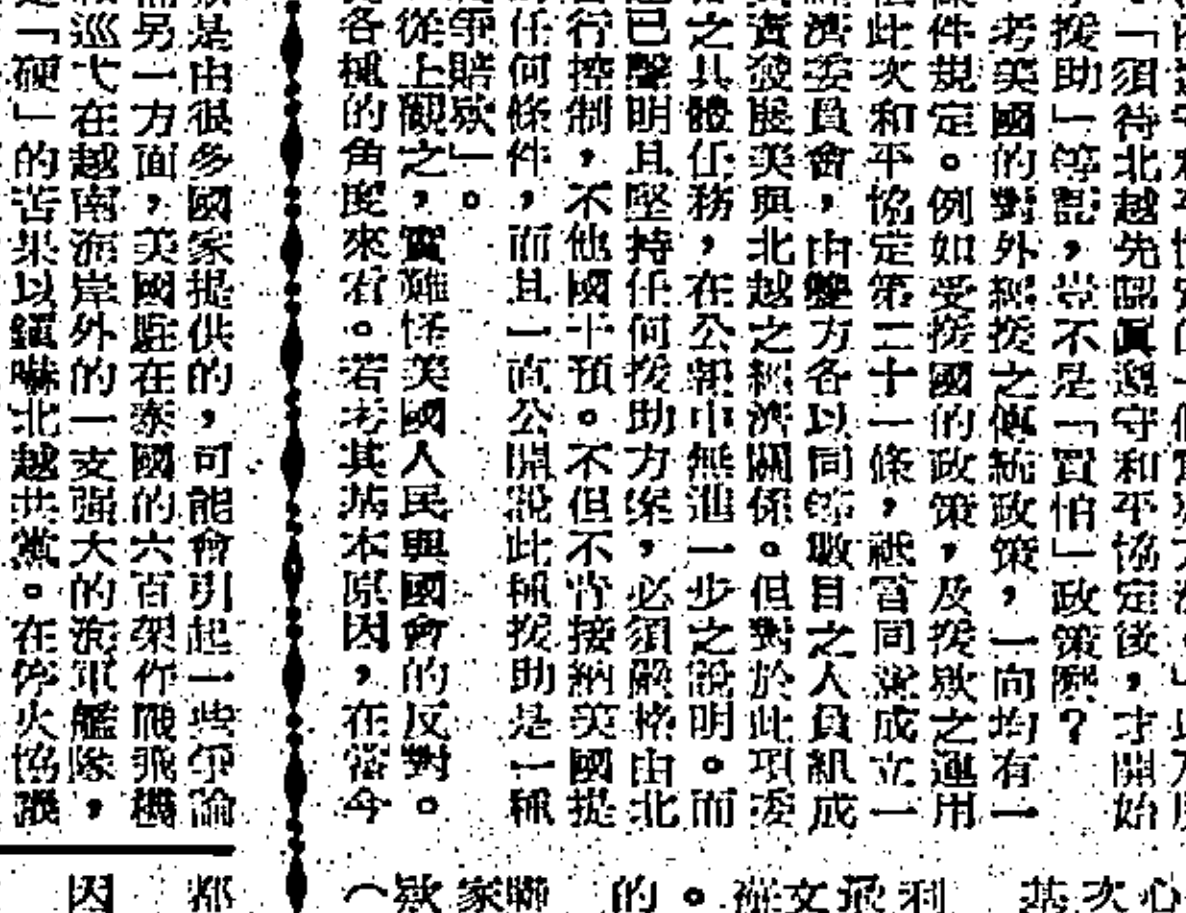 「須待北越先認眞遵守和平協定後，才開始
援助」等語，豈不是「買怕」政策歟？
考美國的對外經援之傳統政策，一向均有一
件規定。例如受援國的政策，及援欵之運用
此次和平協定第二十一條，祗當同意成立一
濟委員會，由雙方各以同等數目之人員組成
資發展美與北越之經濟關係。但對於此項委
之具體任務，在公報中無進一步之說明。而
已聲明且堅持任何援助方案，必須嚴格由北
行控制，不他國干預。不但不肯接納美國提
任何條件，而且一直公開說此種援助是一種
爭賠欵」。
從上觀之，實難怪美國人民與國會的反對。
各種的角度來看。若考其基本原因，在當今
是由很多國家提供的，可能會引起一些爭論
另一方面，美國駐在泰國的六百架作戰飛機
巡弋在越南海岸外的一支强大的海軍艦隊，
「硬」的苦果以鎮嚇北越共黨。在停火協議
心
次
基
利
最
文
的
聯
家
欵
都
因